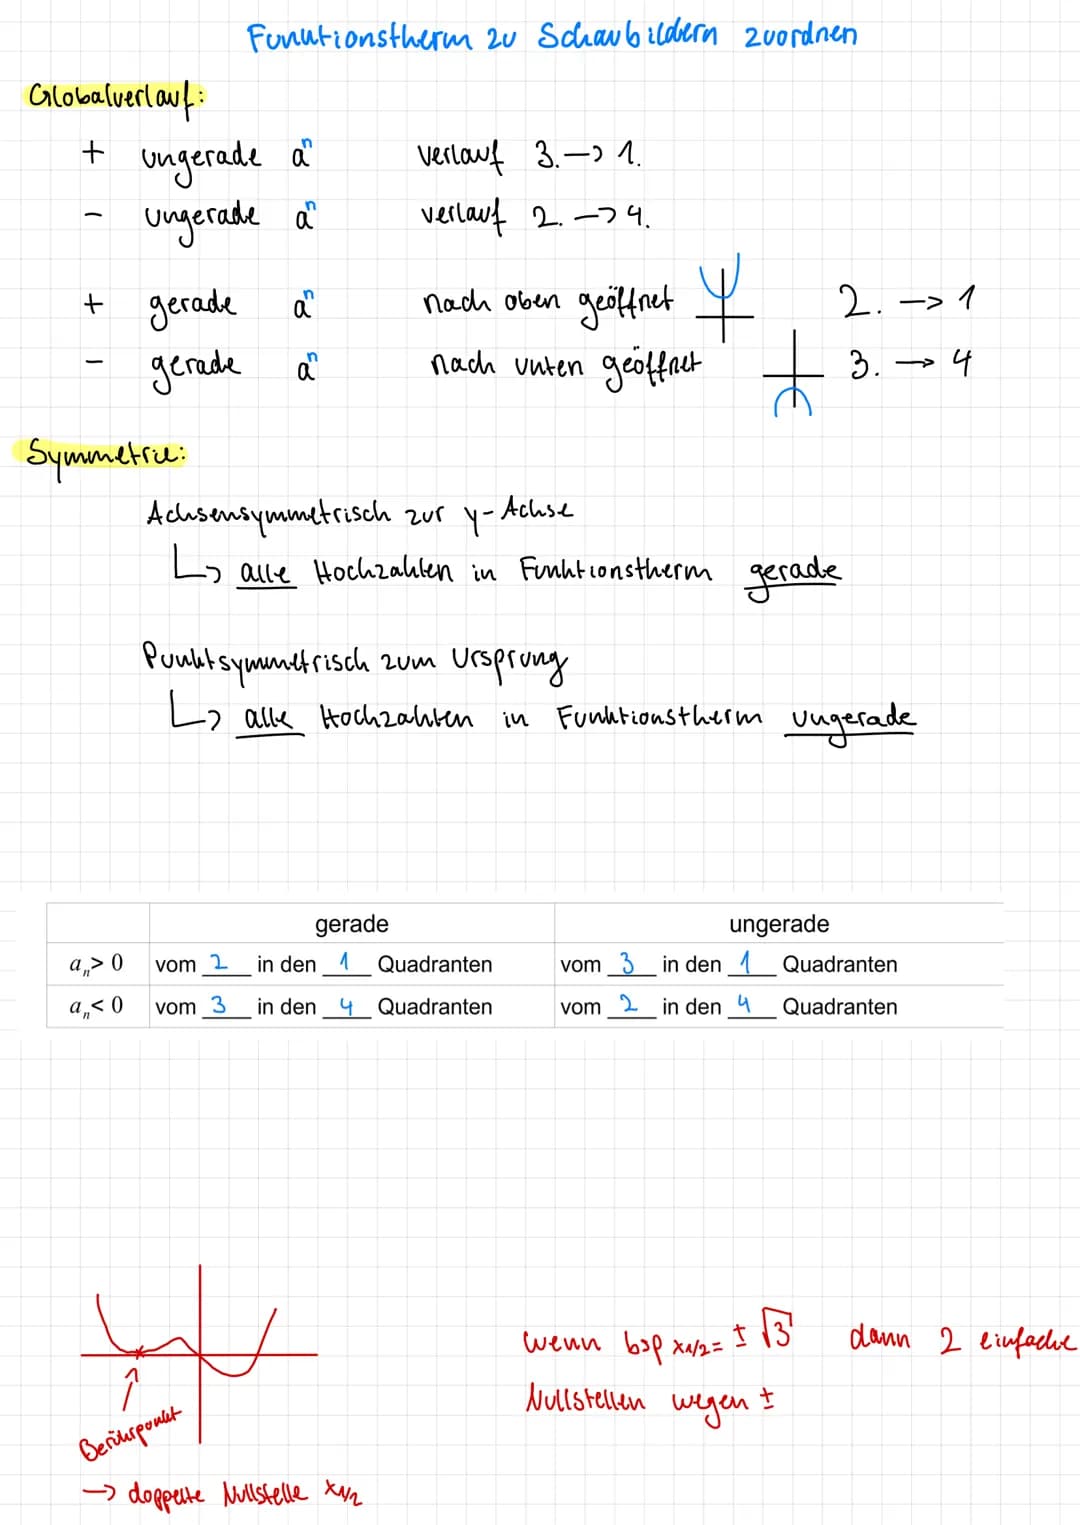 Funktionstherm zu Schaubildern zuordnen
Globalverlauf:
+ ungerade aⁿ verlauf 3. -> 1.
- ungerade aⁿ verlauf 2. -> 4.
+ gerade aⁿ nach oben geöffnet 2. -> 1
- gerade aⁿ nach unten geöffnet 3. -> 4
Symmetrie:
Achsensymmetrisch zur y-Achse
↳ alle Hochzahlen in Funktionstherm gerade
Punktsymmetrisch zum Ursprung
↳ alle Hochzahlen in Funktionstherm ungerade
gerade ungerade
aₙ> 0 vom 2 in den 1 Quadranten vom 3 in den 1 Quadranten
aₙ< 0 vom 3 in den 4 Quadranten vom 2 in den 4 Quadranten
wenn bsp x1/2= ± √3 dann 2 einfache
Nullstellen wegen ±
Berührpunkt
-> doppelte Nullstelle x1/2